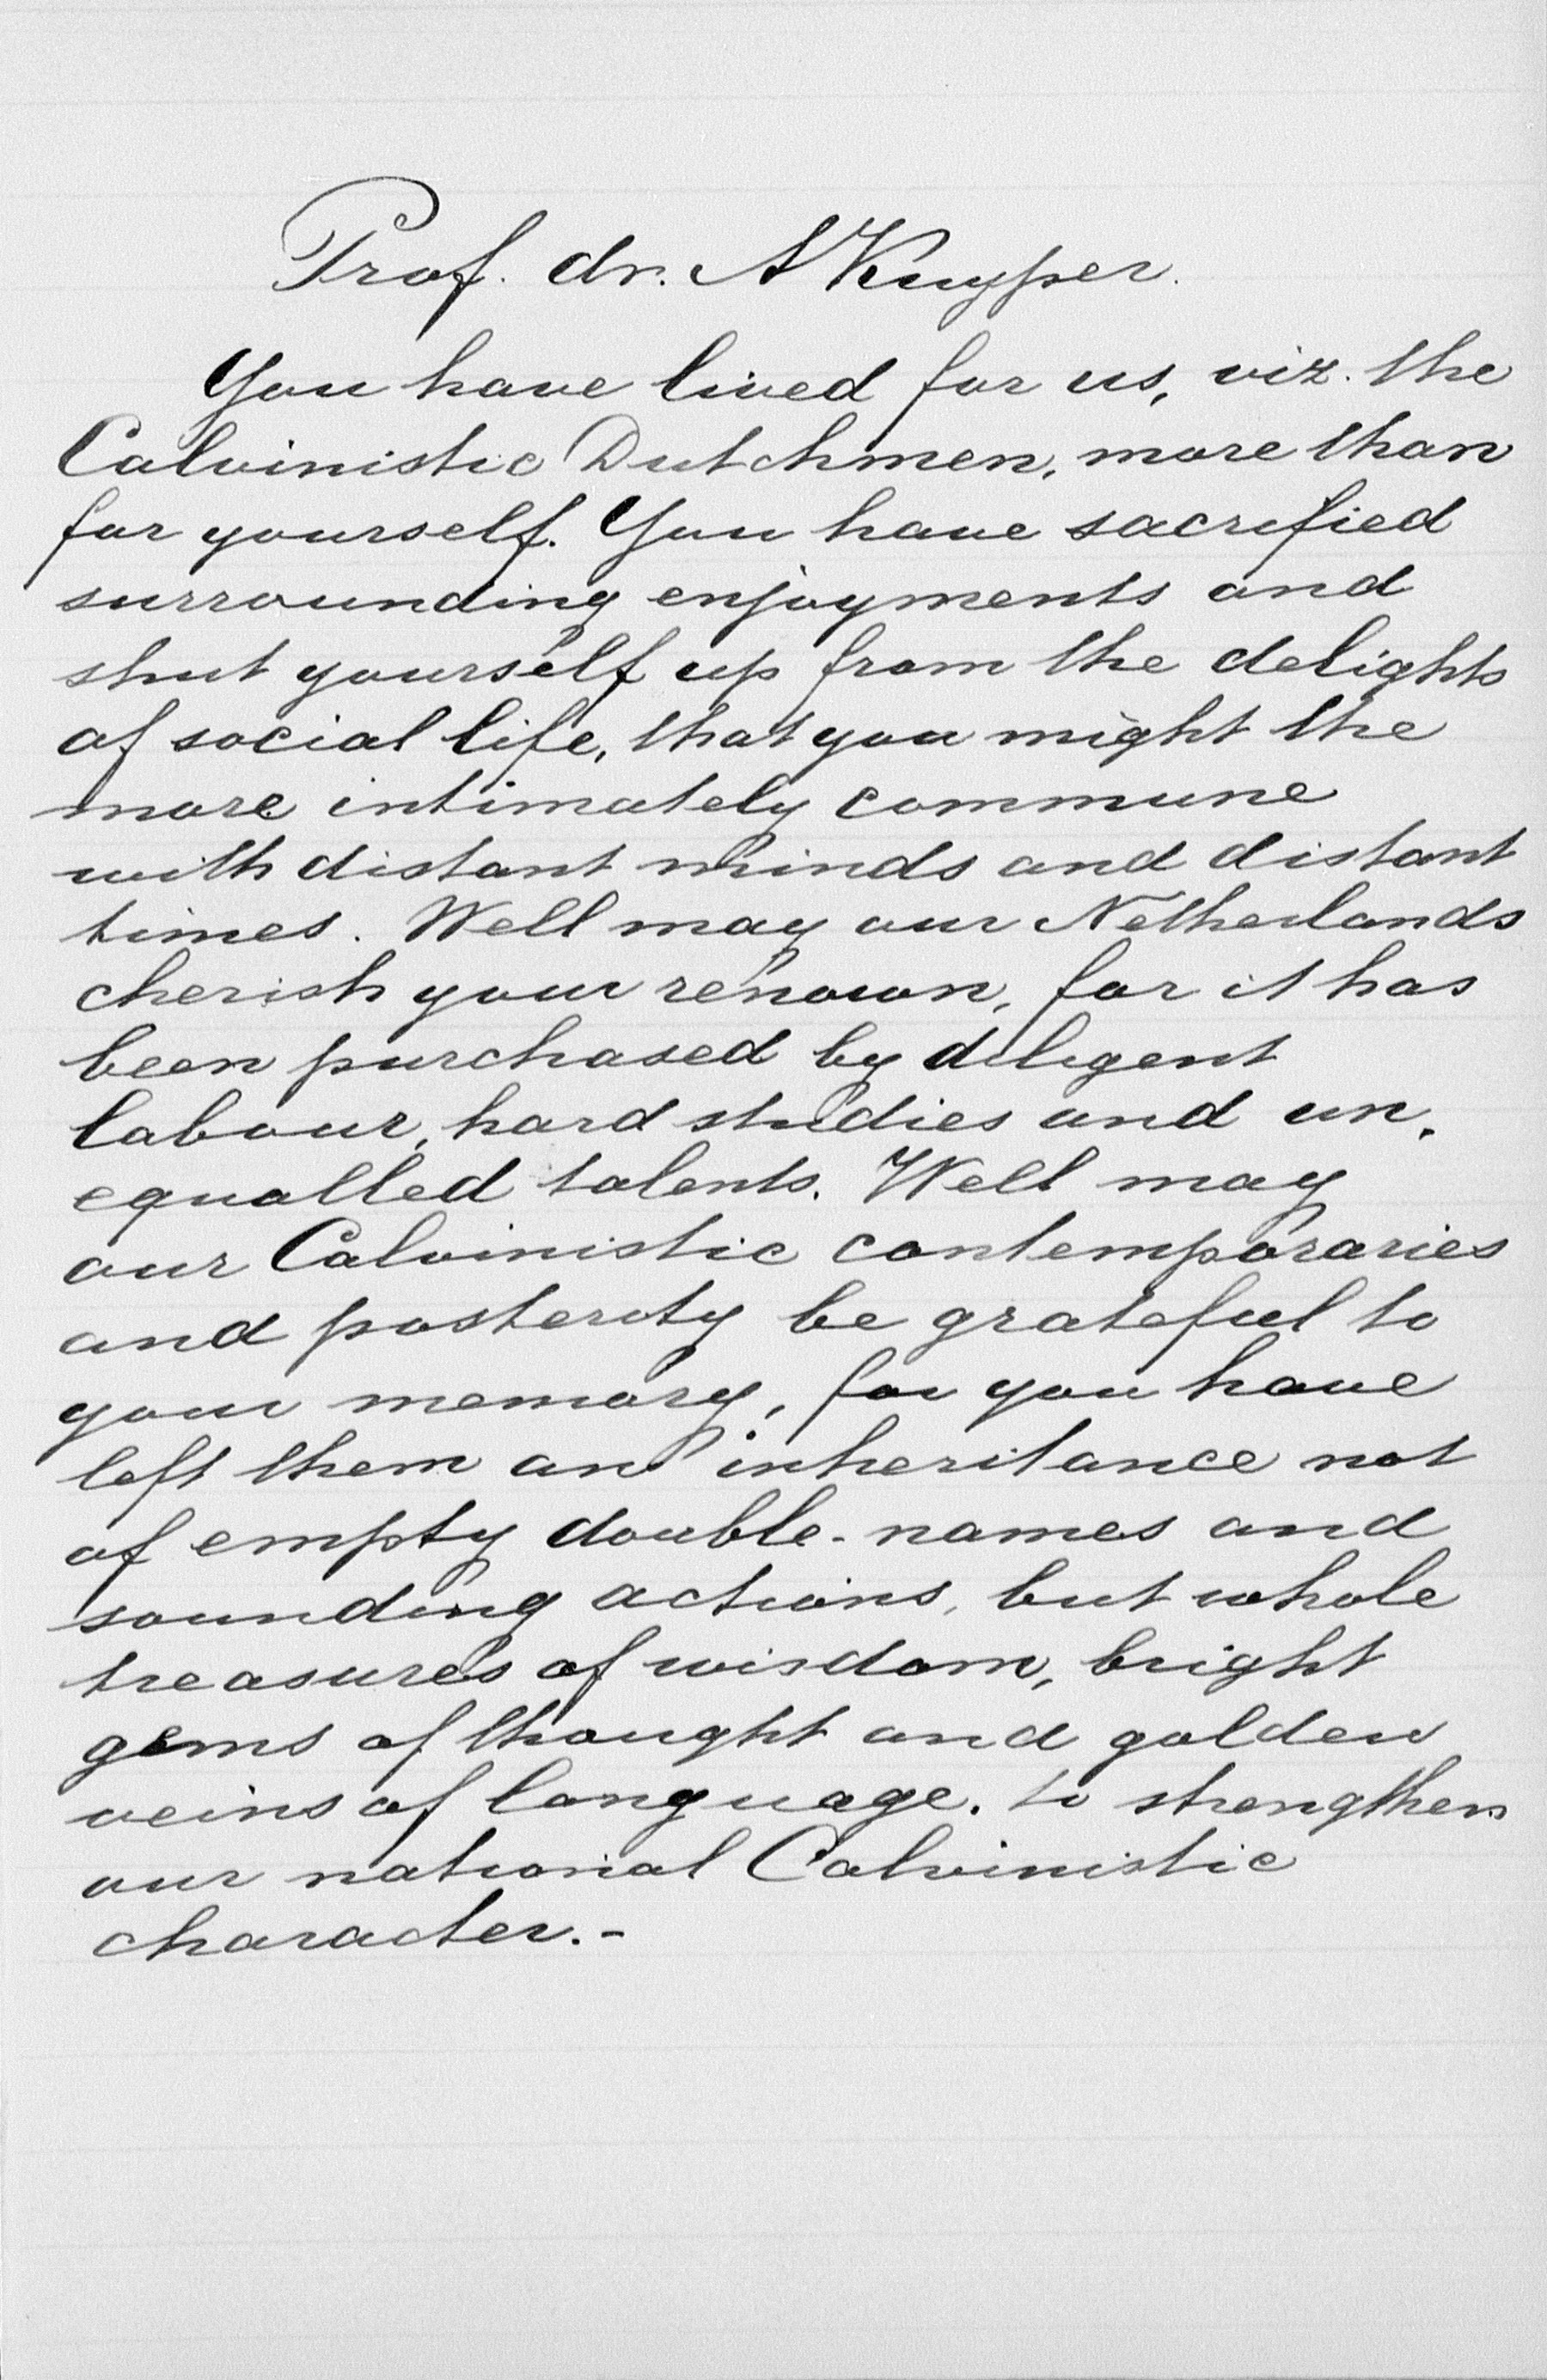 Prof. dr. A Kuyper.
You have lived for us, viz. the
Calvinistic Dutchmen, more than
for yourself. You have sacrified
surrounding enjoyments and
shut yourself up from the delights
of social life, that you might the
more intimately commune
with distant minds and distant
times. Well may our Netherlands
cherish your renown, for it has
been purchased by diligent
labour, hard studies and un-
equalled talents. Well may
our Calvinistic contemporaries
and posterity be grateful to
your memory, for you have
left them an inheritance not
of empty double-names and
sounding actions, but whole
treasures of wisdom, bright
gems of thought and golden
veins of language. to strengthen
our national Calvinistic
character.-